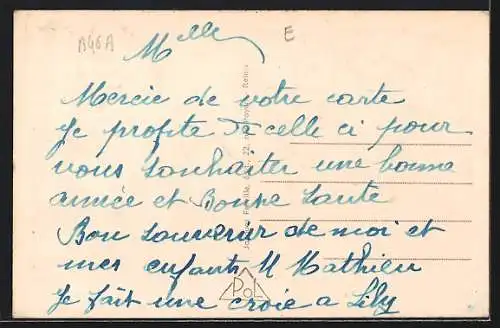 B46A
E
Mlle
Mercie de votre carte
Je profite de celle ci pour
vous souhaiter une bonne
année et Bonne Sante
Bon souvenir de moi et
mes enfants M Mathieu
Je fait une croie a Lily
POL